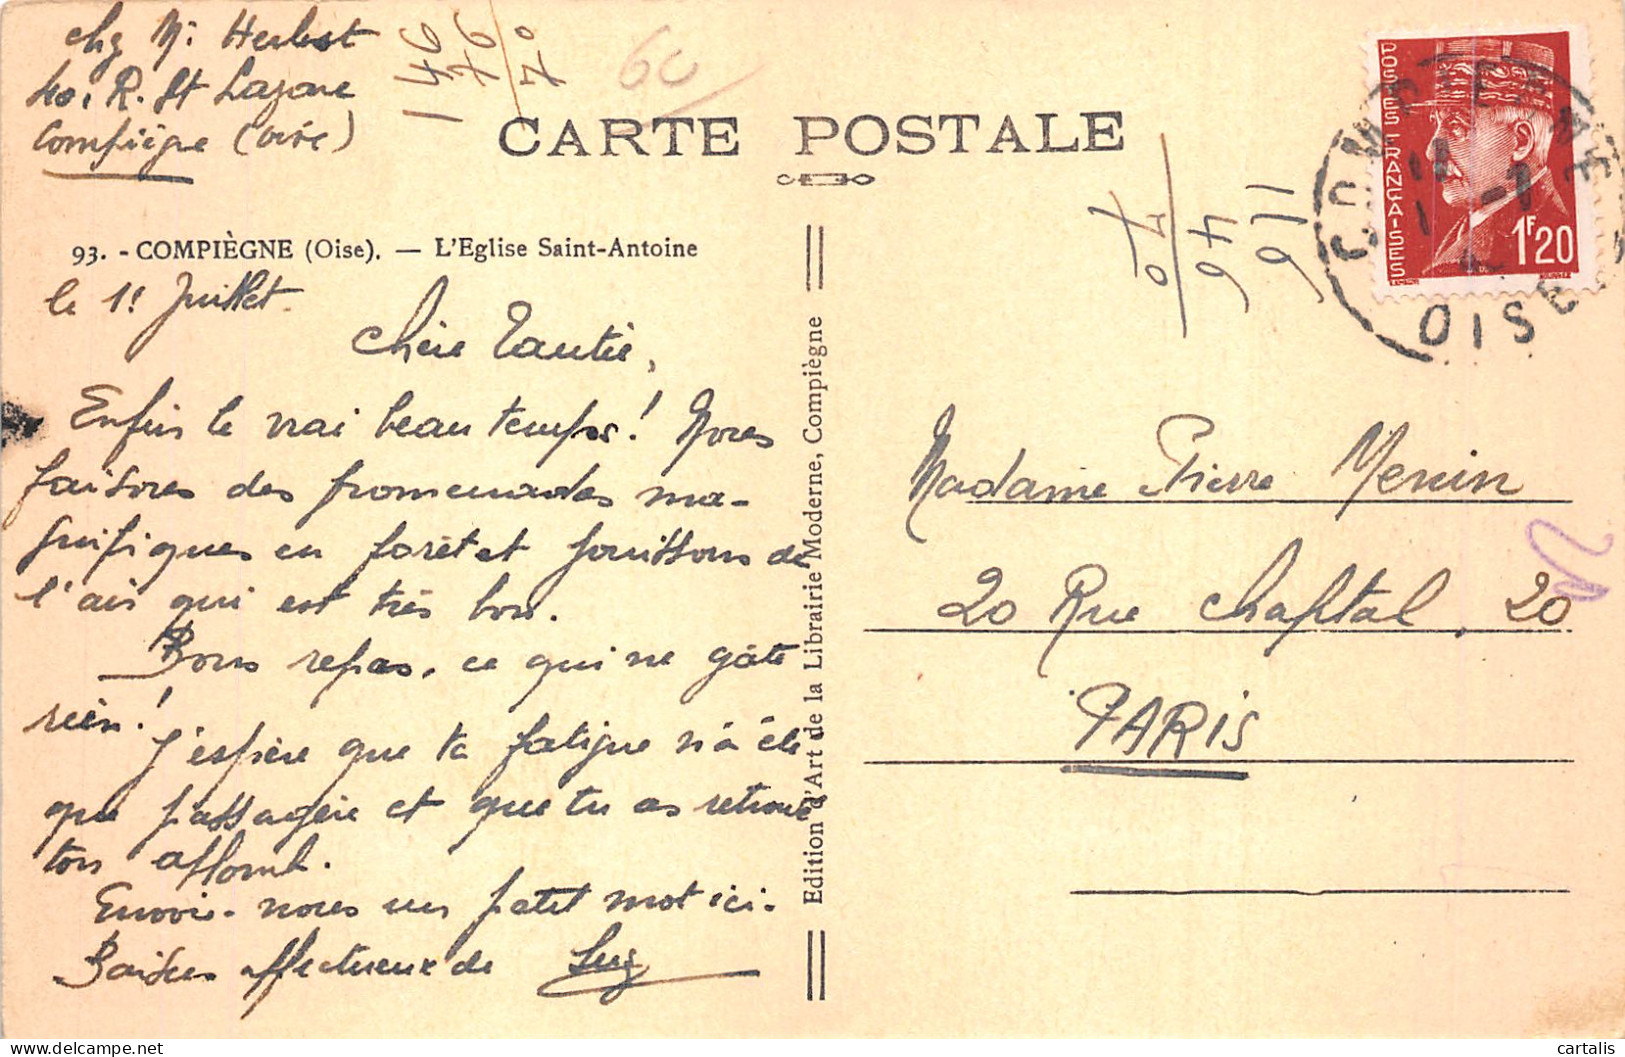 chez Mr Herbst
40, R. St Lazare
Compiègne (Oise)
146
76
70
60
CARTE POSTALE
116
46
70
POSTES FRANÇAISES
1F20
COMPIEGNE
OISE
93. - COMPIÈGNE (Oise). — L'Eglise Saint-Antoine
le 1er Juillet.
Chère Tantie,
Enfin le vrai beau temps! Nous
faisons des promenades ma-
gnifiques en forêt et jouissons de
l'air qui est très bon.
Bons repas, ce qui ne gâte
rien!
J'espère que ta fatigue n'a été
que passagère et que tu as retrouvé
ton aplomb.
Envoie-nous un petit mot ici.
Baisers affectueux de
Edition d'Art de la Librairie Moderne, Compiègne
Madame Pierre Menin
20 Rue Chaptal, 20
PARIS
cartalis